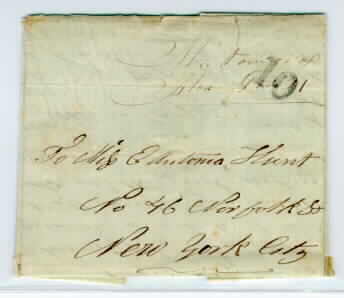 10
To Miss E Antonia Hunt
No 46 Norfolk St
New York City